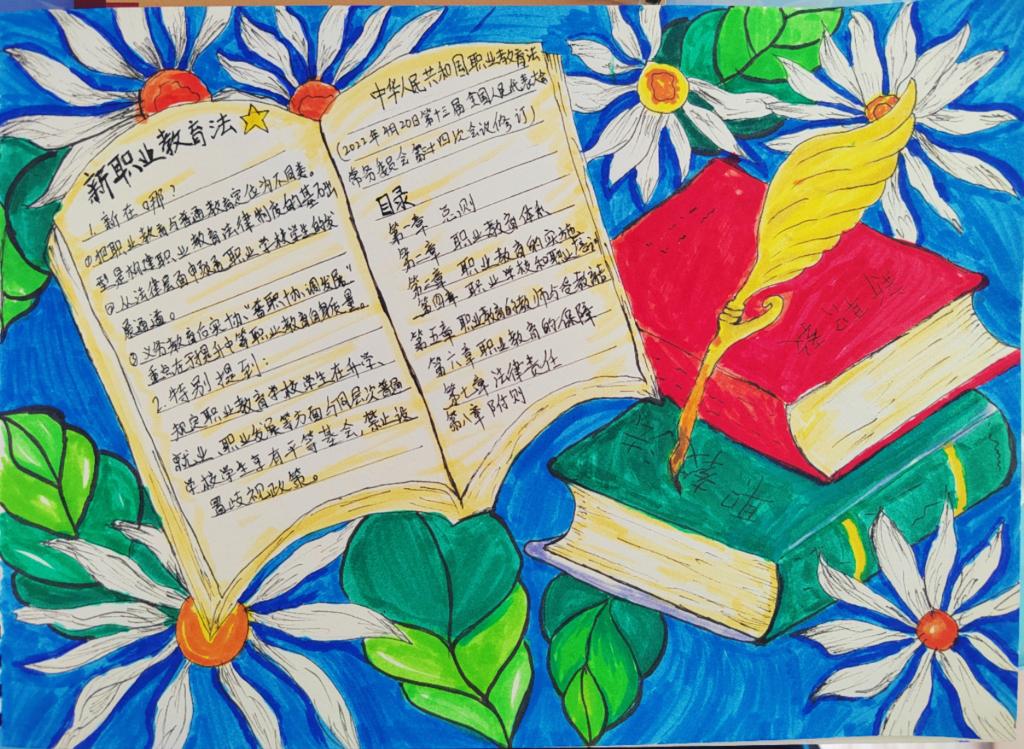 新职业教育法
1.新在哪?
①把职业教育与普通教育定位为不同类
型是构建职业教育法律制度的基石出
②从法律层面中职高职业学校学生的发
展通道。
③义务教育后实协“普职协调发展”
重点在于提升中等职业教育自身质量。
2.特别提到:
规定职业教育学校学生在升学、
就业、职业发展等方面与同层次普通
学校学生享有平等基会,禁止设
置歧视政策。
中华人民共和国职业教育法
(2022年4月20日第十三届全国人民代表大会
常务委员会第三十四次会议修订)
目录
第一章 总则
第二章 职业教育体系
第三章 职业教育的实施
第四章 职业学校和职业培训
第五章 职业教育的教师与受教育者
第六章 职业教育的保障
第七章 法律责任
第八章 附则